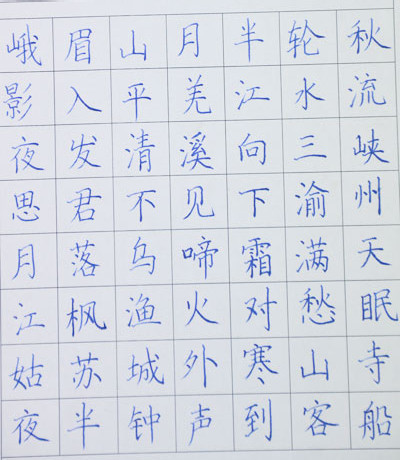 峨眉山月半轮秋
影入平羌江水流
夜发清溪向三峡
思君不见下渝州
月落乌啼霜满天
江枫渔火对愁眠
姑苏城外寒山寺
夜半钟声到客船